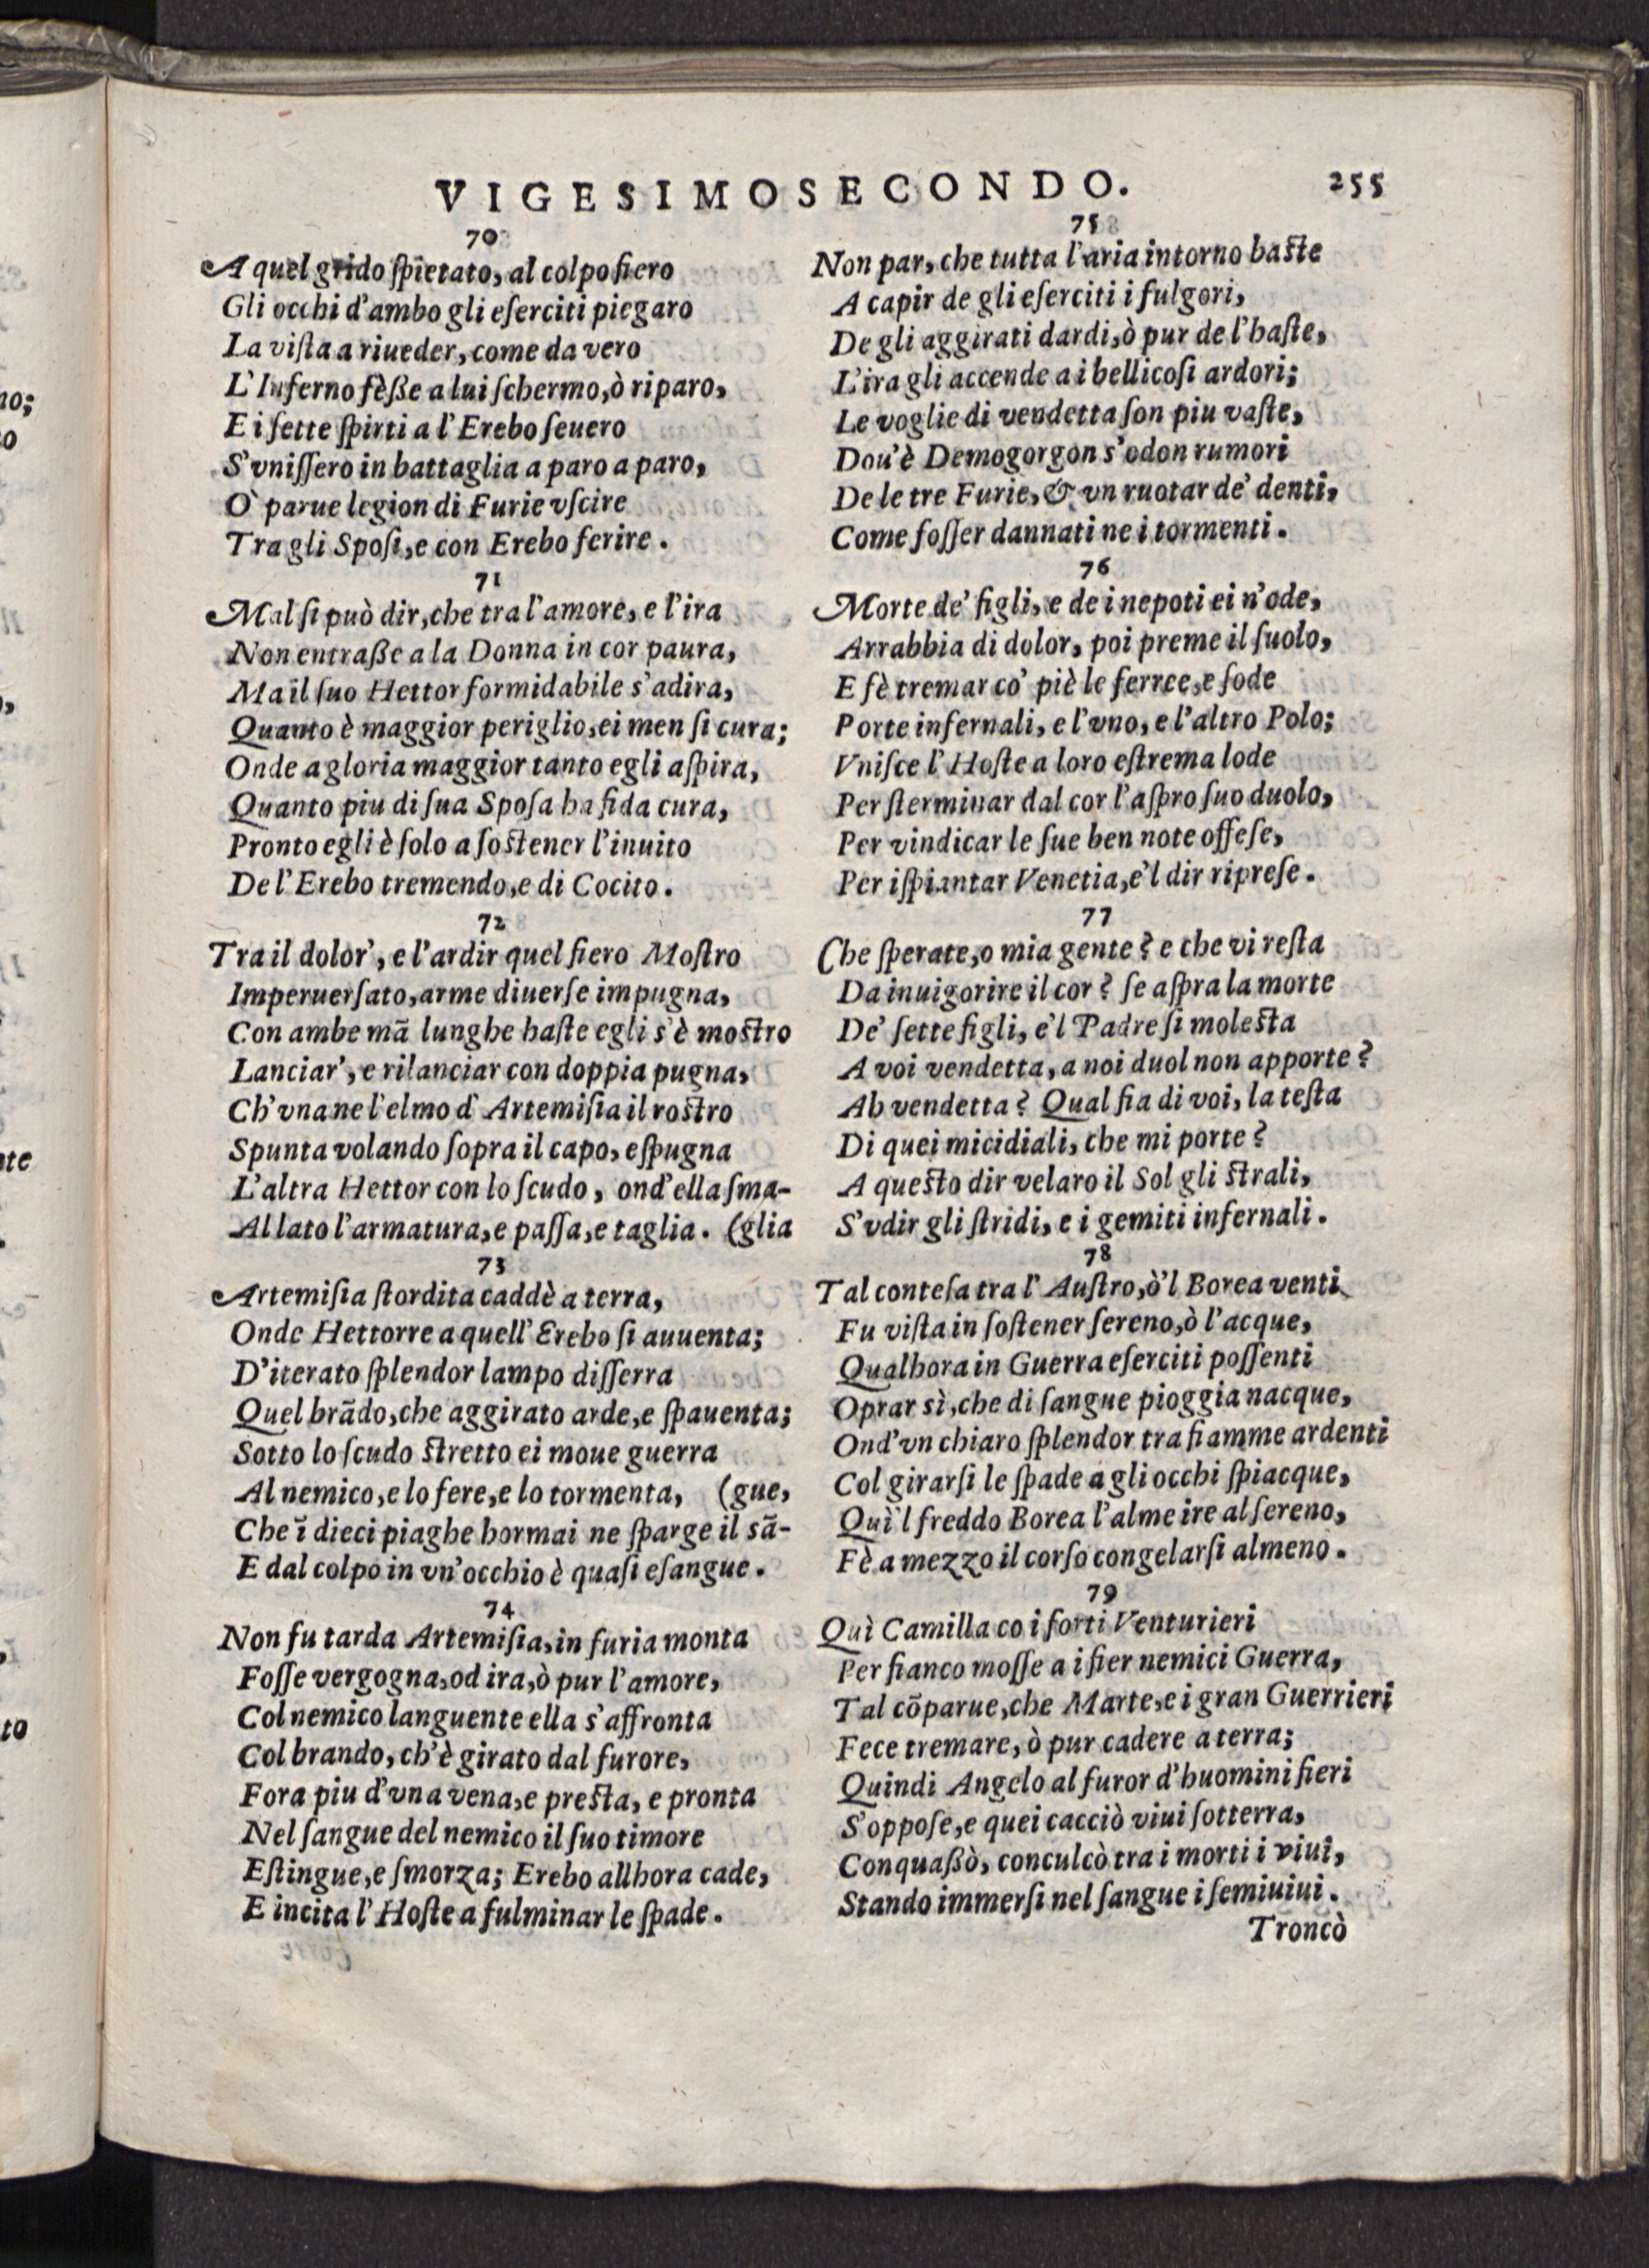 VIGESIMOSECONDO. 255
70
A quel grido ſpietato, al colpo fiero
Gli occhi d'ambo gli eſerciti piegaro
La viſta a riueder, come da vero
L'Inferno fèſſe a lui ſchermo, ò riparo,
E i ſette ſpirti a l'Erebo ſeuero
S'vniſſero in battaglia a paro a paro,
Ò parue legion di Furie vſcire
Tra gli Spoſi, e con Erebo ferire.
71
Mal ſi può dir, che tra l'amore, e l'ira
Non entraſſe a la Donna in cor paura,
Ma il ſuo Hettor formidabile s'adira,
Quanto è maggior periglio, ei men ſi cura;
Onde a gloria maggior tanto egli aſpira,
Quanto piu di ſua Spoſa ha fida cura,
Pronto egli è ſolo a ſoſtener l'inuito
De l'Erebo tremendo, e di Cocito.
72
Tra il dolor', e l'ardir quel fiero Moſtro
Imperuerſato, arme diuerſe impugna,
Con ambe mā lunghe haſte egli s'è moſtro
Lanciar', e rilanciar con doppia pugna,
Ch'vna ne l'elmo d'Artemiſia il roſtro
Spunta volando ſopra il capo, eſpugna
L'altra Hettor con lo ſcudo, ond'ella ſma-
Al lato l'armatura, e paſſa, e taglia. (glia
73
Artemiſia ſtordita caddè a terra,
Onde Hettorre a quell'Erebo ſi auuenta;
D'iterato ſplendor lampo diſſerra
Quel brādo, che aggirato arde, e ſpauenta;
Sotto lo ſcudo ſtretto ei moue guerra
Al nemico, e lo fere, e lo tormenta, (gue,
Che ī dieci piaghe hormai ne ſparge il sā-
E dal colpo in vn'occhio è quaſi eſangue.
74
Non fu tarda Artemiſia, in furia monta
Foſſe vergogna, od ira, ò pur l'amore,
Col nemico languente ella s'affronta
Col brando, ch'è girato dal furore,
Fora piu d'vna vena, e preſta, e pronta
Nel ſangue del nemico il ſuo timore
Eſtingue, e ſmorza; Erebo allhora cade,
E incita l'Hoſte a fulminar le ſpade.
75
Non par, che tutta l'aria intorno baſte
A capir de gli eſerciti i fulgori,
De gli aggirati dardi, ò pur de l'haſte,
L'ira gli accende a i bellicoſi ardori;
Le voglie di vendetta ſon piu vaſte,
Dou'è Demogorgon s'odon rumori
De le tre Furie, & vn ruotar de' denti,
Come foſſer dannati ne i tormenti.
76
Morte de' figli, e de i nepoti ei n'ode,
Arrabbia di dolor, poi preme il ſuolo,
E fè tremar co' piè le ferree, e ſode
Porte infernali, e l'vno, e l'altro Polo;
Vniſce l'Hoſte a loro eſtrema lode
Per ſterminar dal cor l'aſpro ſuo duolo,
Per vindicar le ſue ben note offeſe,
Per iſpiantar Venetia, e'l dir ripreſe.
77
Che ſperate, o mia gente? e che vi reſta
Da inuigorire il cor? ſe aſpra la morte
De' ſette figli, e'l Padre ſi moleſta
A voi vendetta, a noi duol non apporte?
Ah vendetta? Qual fia di voi, la teſta
Di quei micidiali, che mi porte?
A queſto dir velaro il Sol gli ſtrali,
S'vdir gli ſtridi, e i gemiti infernali.
78
Tal conteſa tra l'Auſtro, ò'l Borea venti
Fu viſta in ſoſtener ſereno, ò l'acque,
Qualhora in Guerra eſerciti poſſenti
Oprar sì, che di ſangue pioggia nacque,
Ond'vn chiaro ſplendor tra fiamme ardenti
Col girarſi le ſpade a gli occhi ſpiacque,
Quì'l freddo Borea l'alme ire al ſereno,
Fè a mezzo il corſo congelarſi almeno.
79
Quì Camilla co i forti Venturieri
Per fianco moſſe a i fier nemici Guerra,
Tal cōparue, che Marte, e i gran Guerrieri
Fece tremare, ò pur cadere a terra;
Quindi Angelo al furor d'huomini fieri
S'oppoſe, e quei cacciò viui ſotterra,
Conquaſſò, conculcò tra i morti i viui,
Stando immerſi nel ſangue i ſemiuiui.
Troncò